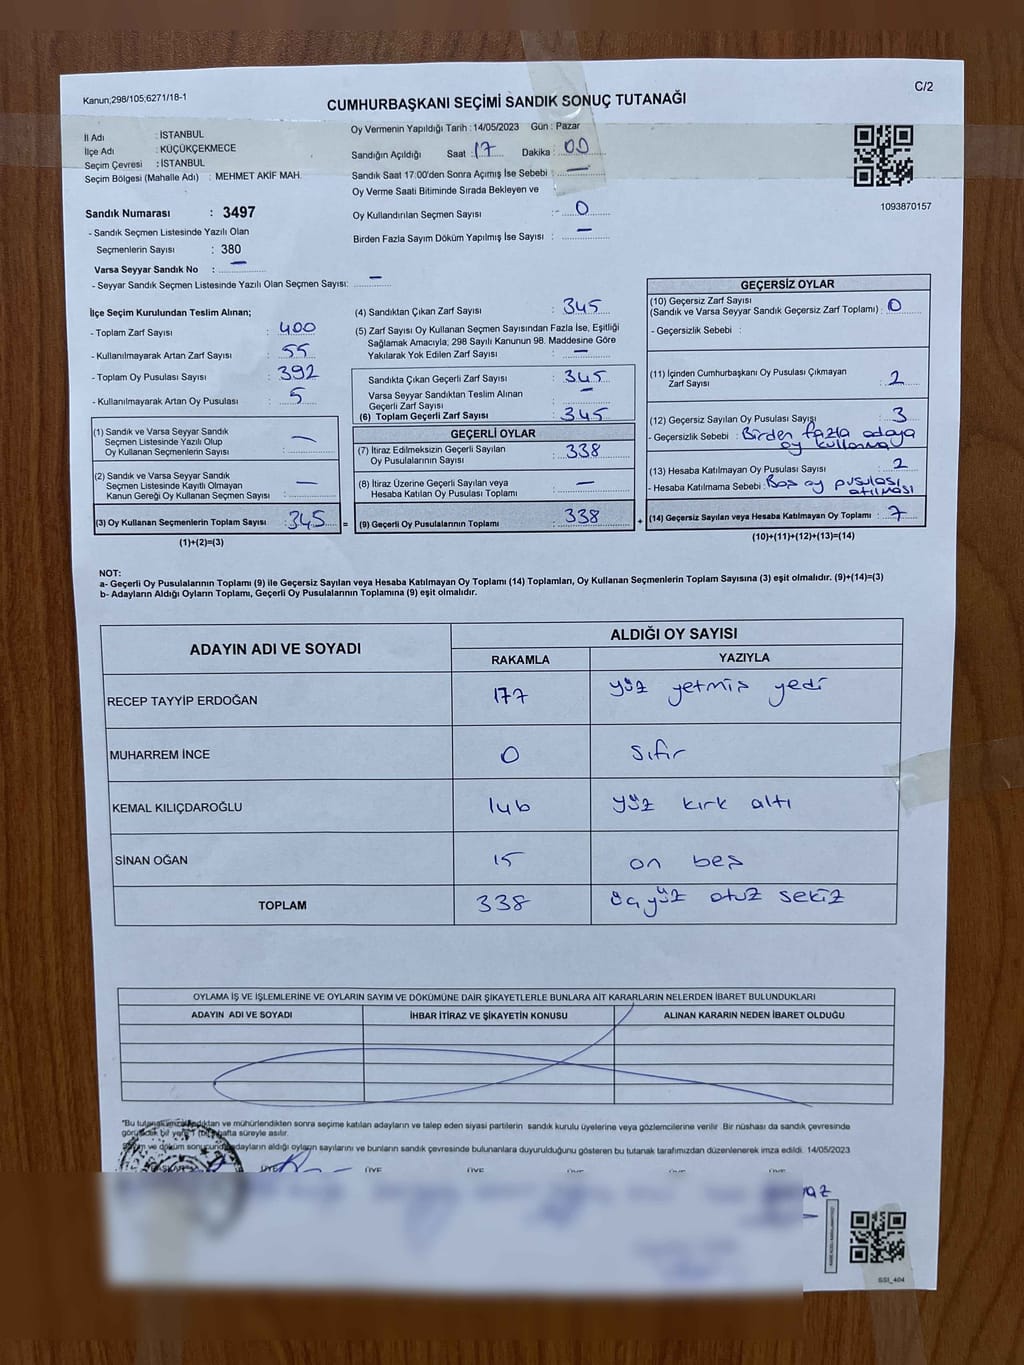 Kanun;298/105;6271/18-1
C/2
CUMHURBAŞKANI SEÇİMİ SANDIK SONUÇ TUTANAĞI
İl Adı : İSTANBUL
İlçe Adı : KÜÇÜKÇEKMECE
Seçim Çevresi : İSTANBUL
Seçim Bölgesi (Mahalle Adı) : MEHMET AKİF MAH.
Sandık Numarası : 3497
- Sandık Seçmen Listesinde Yazılı Olan
Seçmenlerin Sayısı : 380
Varsa Seyyar Sandık No : —
- Seyyar Sandık Seçmen Listesinde Yazılı Olan Seçmen Sayısı: —
Oy Vermenin Yapıldığı Tarih : 14/05/2023 Gün : Pazar
Sandığın Açıldığı Saat : 17 Dakika : 00
Sandık Saat 17:00'den Sonra Açımış İse Sebebi : —
Oy Verme Saati Bitiminde Sırada Bekleyen ve
Oy Kullandırılan Seçmen Sayısı :- 0
Birden Fazla Sayım Döküm Yapılmış İse Sayısı : —
1093870157
İlçe Seçim Kurulundan Teslim Alınan;
- Toplam Zarf Sayısı : 400
- Kullanılmayarak Artan Zarf Sayısı : 55
- Toplam Oy Pusulası Sayısı : 392
- Kullanılmayarak Artan Oy Pusulası : 5
(1) Sandık ve Varsa Seyyar Sandık
Seçmen Listesinde Yazılı Olup
Oy Kullanan Seçmenlerin Sayısı : —
(2) Sandık ve Varsa Seyyar Sandık
Seçmen Listesinde Kayıtlı Olmayan
Kanun Gereği Oy Kullanan Seçmen Sayısı : —
(3) Oy Kullanan Seçmenlerin Toplam Sayısı : 345 =
(1)+(2)=(3)
(4) Sandıktan Çıkan Zarf Sayısı : 345
(5) Zarf Sayısı Oy Kullanan Seçmen Sayısından Fazla İse, Eşitliği
Sağlamak Amacıyla, 298 Sayılı Kanunun 98. Maddesine Göre
Yakılarak Yok Edilen Zarf Sayısı : —
Sandıkta Çıkan Geçerli Zarf Sayısı : 345
Varsa Seyyar Sandıktan Teslim Alınan
Geçerli Zarf Sayısı : —
(6) Toplam Geçerli Zarf Sayısı : 345
GEÇERLİ OYLAR
(7) İtiraz Edilmeksizin Geçerli Sayılan
Oy Pusulalarının Sayısı : 338
(8) İtiraz Üzerine Geçerli Sayılan veya
Hesaba Katılan Oy Pusulası Toplamı : —
(9) Geçerli Oy Pusulalarının Toplamı : 338 +
GEÇERSİZ OYLAR
(10) Geçersiz Zarf Sayısı
(Sandık ve Varsa Seyyar Sandık Geçersiz Zarf Toplamı) : 0
- Geçersizlik Sebebi :
(11) İçinden Cumhurbaşkanı Oy Pusulası Çıkmayan
Zarf Sayısı : 2
(12) Geçersiz Sayılan Oy Pusulası Sayısı : 3
- Geçersizlik Sebebi : Birden fazla adaya
oy kullanma
(13) Hesaba Katılmayan Oy Pusulası Sayısı : 2
- Hesaba Katılmama Sebebi : Boş oy pusulası
atılması
(14) Geçersiz Sayılan veya Hesaba Katılmayan Oy Toplamı : 7
(10)+(11)+(12)+(13)=(14)
NOT:
a- Geçerli Oy Pusulalarının Toplamı (9) ile Geçersiz Sayılan veya Hesaba Katılmayan Oy Toplamı (14) Toplamları, Oy Kullanan Seçmenlerin Toplam Sayısına (3) eşit olmalıdır. (9)+(14)=(3)
b- Adayların Aldığı Oyların Toplamı, Geçerli Oy Pusulalarının Toplamına (9) eşit olmalıdır.
ADAYIN ADI VE SOYADI ALDIĞI OY SAYISI
RAKAMLA YAZIYLA
RECEP TAYYİP ERDOĞAN 177 yüz yetmiş yedi
MUHARREM İNCE 0 sıfır
KEMAL KILIÇDAROĞLU 146 yüz kırk altı
SİNAN OĞAN 15 on beş
TOPLAM 338 üçyüz otuz sekiz
OYLAMA İŞ VE İŞLEMLERİNE VE OYLARIN SAYIM VE DÖKÜMÜNE DAİR ŞİKAYETLERLE BUNLARA AİT KARARLARIN NELERDEN İBARET BULUNDUKLARI
ADAYIN ADI VE SOYADI İHBAR İTİRAZ VE ŞİKAYETİN KONUSU ALINAN KARARIN NEDEN İBARET OLDUĞU
*Bu tutanak ve mühürlendikten sonra seçime katılan adayların ve talep eden siyasi partilerin sandık kurulu üyelerine veya gözlemcilerine verilir. Bir nüshası da sandık çevresinde
hafta süreyle asılır.
ve döküm sonucunda adayların aldığı oyların sayılarını ve bunların sandık çevresinde bulunanlara duyurulduğunu gösteren bu tutanak tarafımızdan düzenlenerek imza edildi. 14/05/2023
ÜYE ÜYE ÜYE
SSI_404